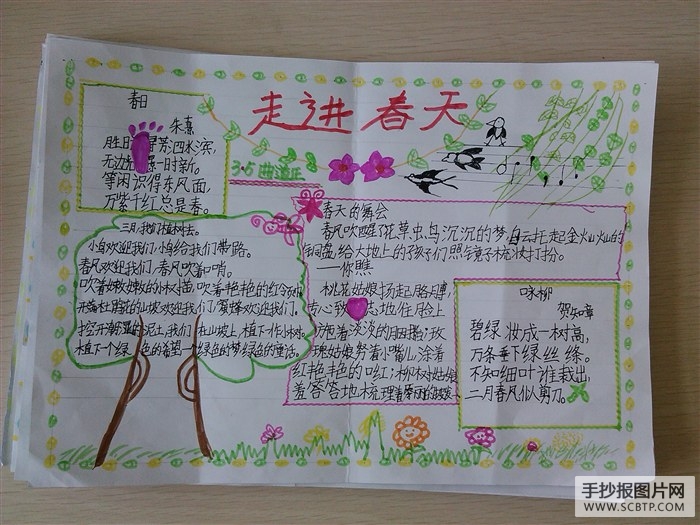 走进春天
春日
朱熹
胜日寻芳泗水滨,
无边 一时新。
等闲识得东风面,
万紫千红总是春。
3.5
三月,我们植树去。
小鸟欢迎我们,小鸟给我们带路。
春风欢迎我们,春风吹着口哨。
吹着嫩嫩的小树苗,吹着艳艳的红领巾
开满杜鹃花的山坡欢迎我们,蜜蜂欢迎我们,
挖开 的泥土,我们在山坡上植下一棵小树
植下一个绿色的希望一个绿色的梦绿色的童话。
春天的舞会
春风吹醒了花草虫鸟沉沉的梦,白云托起金灿灿的
铜盘,给大地上的孩子们照镜子梳妆打扮。
——你瞧
桃花姑娘扬起胳膊,
地往脸上
抹着淡淡的胭脂;玫
瑰姑娘努着小嘴儿,涂着
红艳艳的口红;柳树姑娘
羞答答地梳理着
咏柳
贺知章
碧绿妆成一树高,
万条垂下绿丝绦。
不知细叶谁裁出,
二月春风似剪刀。
手抄报图片网
WWW.SCBTP.COM